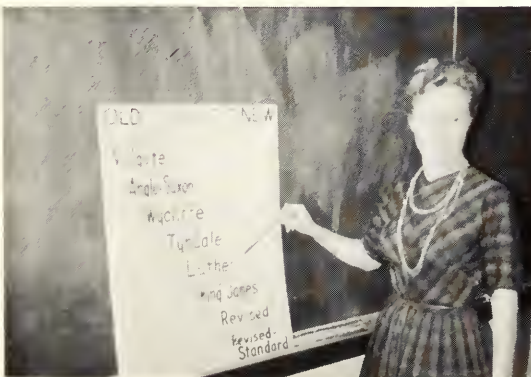 OLD NEW
Vulgate
Anglo-Saxon
Wycliffe
Tyndale
Luther
King James
Revised
Revised-
Standard